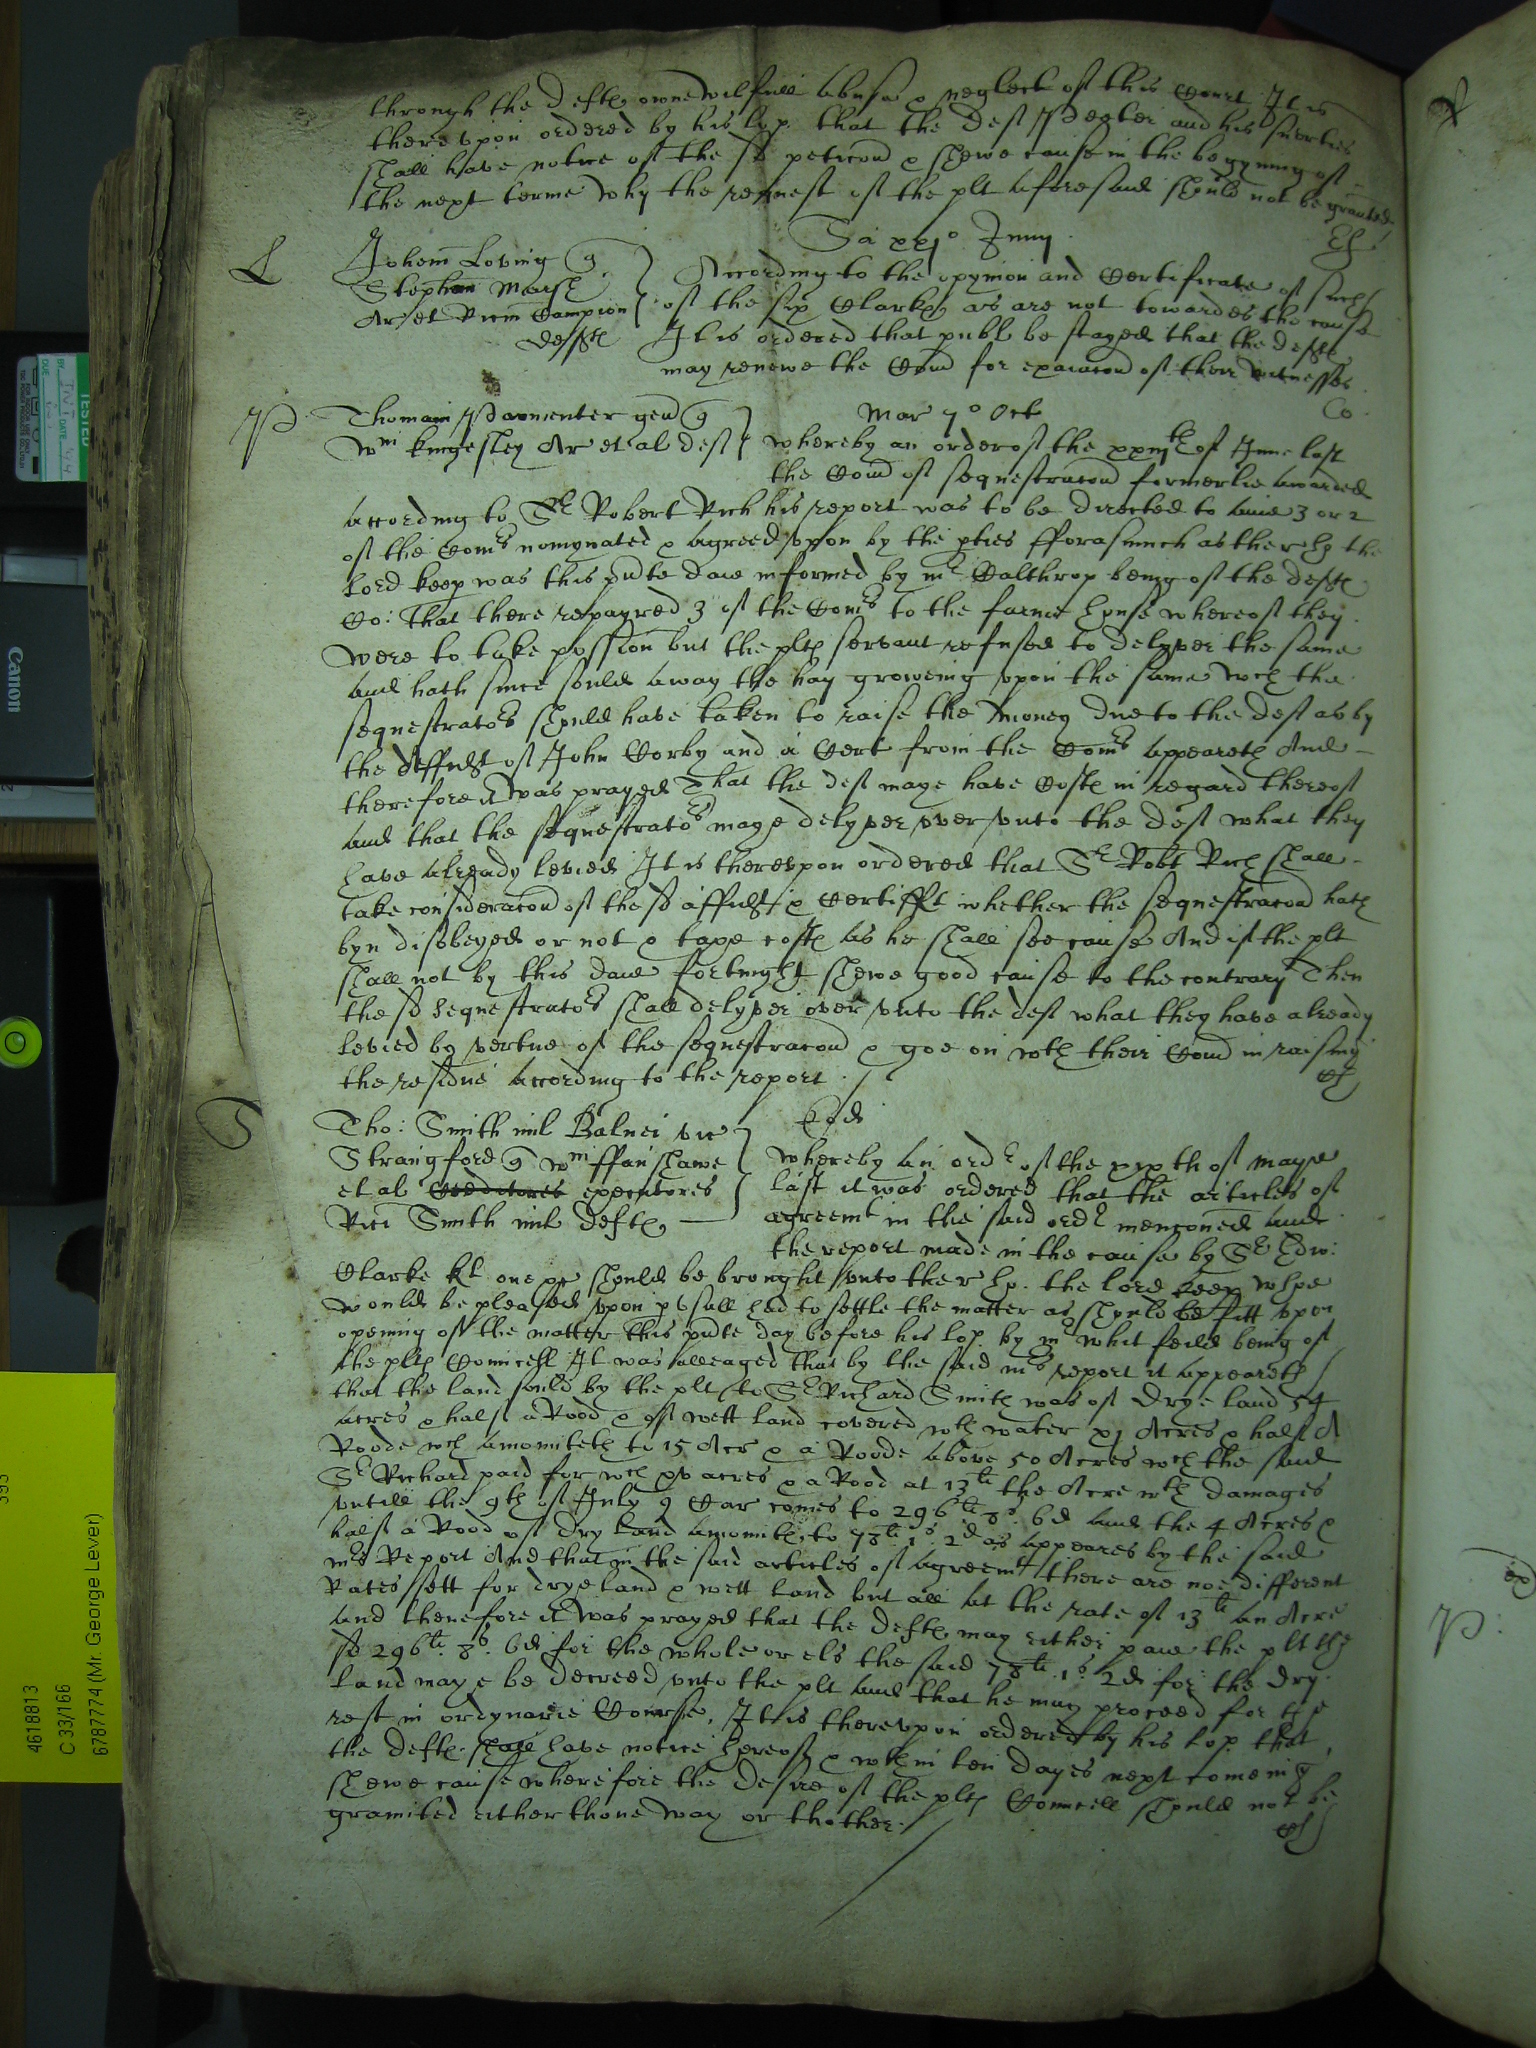 through the defte owne wilfull abuse & neglect of this Court It is
there vpon ordered by his lop. that the deft and his suerties
shall have notice of the sd peticon & shewe cause in the begynning of
the next terme why the request of the plt aforesaid should not be graunted
Sa xxjo Junij
L Johem Loving
Stephan Marsh
Ar et Ricm Campion
defftes
According to the opynion and Certificate of such
of the six Clarkes as are not towardes the cause
It is ordered that publ be stayed that the defftes
may renewe the Com for exaiacon of their witnesses
Co
P Thomam Parmenter gen
Wm kingesley Ar et al deft
Mar 7o Oct
whereby an order of the xxiijth of June last
the Com of sequestracon formerlie awarded
according to Sr Robert Rich his report was to be directed to anie 3 or 2
of the Comrs nomynated & agreed vpon by the pties fforasmuch as the r hp the
Lord keep was this pnte daie informed by mr Calthrop being of the defftes
Co: That there repayred 3 of the Comrs to the farme house whereof they
were to take possion but the pltes servant refused to delyver the same
and hath since sould away the hay groweing vpon the same wch the
sequestrators should have taken to raise the money due to the deft as by
the affidt of John Corby and a Cert from the Comrs appeareth And
therefore it was prayed That the deft maye have Costes in regard thereof
and that the sequestrators maye delyver over vnto the deft what they
have already levied It is therevpon ordered that Sr Robt Rich shall
take consideracon of the sd affidt & Certiffie whether the sequestracon hath
byn disobeyed or not & taxe costes as he shall see cause And if the plt
shall not by this daie fortnight shewe good cause to the contrary Then
the sd sequestrators shall delyver over vnto the deft what they have already
levied by vertue of the sequestracon & goe on wth their Com in raising
the residue according to the report
T Tho: Smith mil Balnei vic
Strangford wm ffanshawe
et al Creditores executores
Rici Smith mil deftes
Eod
whereby an ordr of the xxxth of maye
last it was ordered that the articles of
agreemt in the said ordr menconed and
the report made in the cause by Sr Edw:
Clarke kt one &c should be brought vnto the r hp. the lord keep whoe
would be pleased vpon pvsall had to settle the matter as should be fitt vpon
opening of the matter this pnte day before his lop. by mr whitfeild being of
the pltes Councell It was alleaged that by the said mrs report it appeareth
that the land sould by the plt to Sr Richard Smith was of drye land 54
acres & half a Rood & of wett land covered wth water xj Acres & half A
Roode wch amounteth to 15 Acr & a Roode above 50 Acres wch the said
Sr Richard paid for wch xv acres & a Rood at 13li the Acre wth damages
vntill the 9th of July 9 Car comes to 296li 8s 6d and the 4 Acres &
half a Rood of dry land amounte to 78li 1s 2d as appeares by the said
mrs Report And that in the said articles of agreemt there are noe different
Rates sett for drye land & wett land but all at the rate of 13li an Acre
and therefore it was prayed that the deftes may either paie the plt the
sd 296li 8s 6d for the whole or els the said 78li 1s 2d for the dry
land maye be decreed vnto the plt and that he may proceed for the
rest in ordynarie Course. It is therevpon ordered by his lop. that
the deftes shall have notice hereof & wthin ten dayes next comeing
shewe cause wherefore the desire of the pltes Councell should not be
graunted either thone way or thother.
P:
TESTED
BY INIT DATE
DUE
Canon
393
4618813
C 33/166
6787774 (Mr. George Lever)